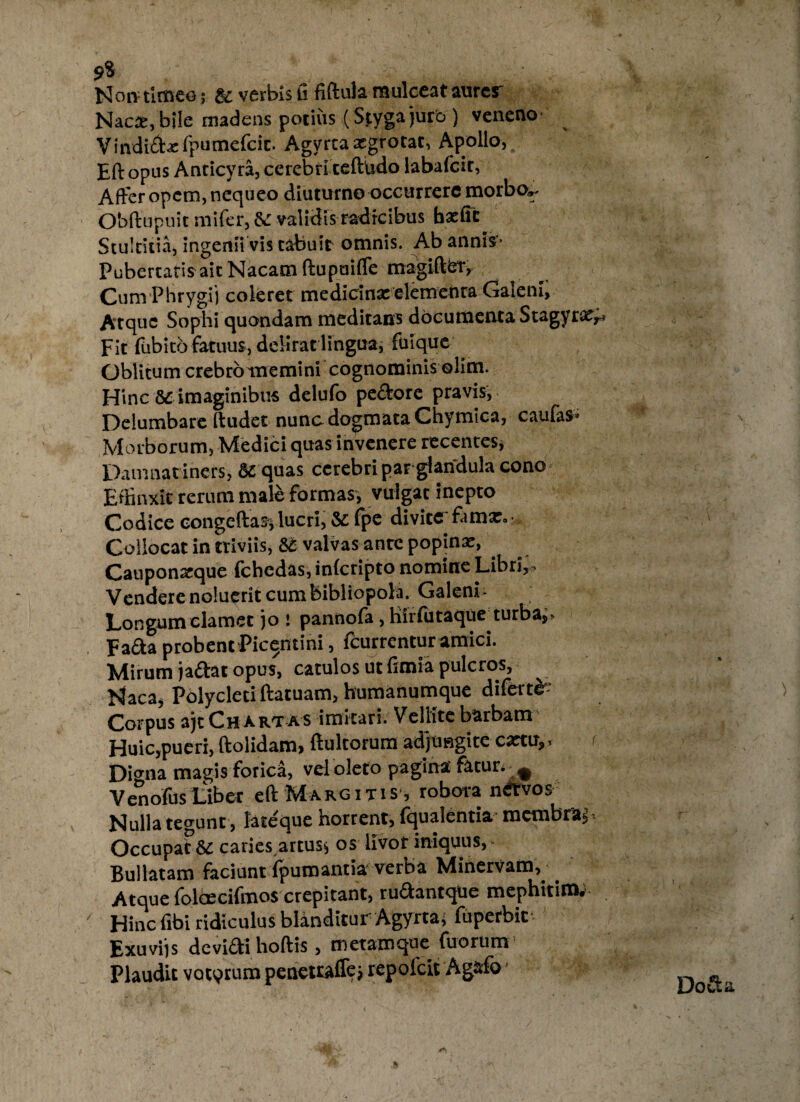 98
Non timeo; & verbis ſi fiſtula mulceat aures
Nacæ, bile madens potiùs (Styga juro) veneno
Vindictæ ſpumeſcit. Agyrta ægrotat, Apollo,
Eſt opus Anticyrâ, cerebri teſtudo labaſcit,
Affer opem, nequeo diuturno occurrere morbo,
Obſtupuit miſer, & validis radicibus hæſit
Stultitiâ, ingenii vis tabuit omnis. Ab annis
Pubertatis ait Nacam ſtupuiſſe magiſter,
Cum Phrygij coleret medicinæ elementa Galeni,
Atque Sophi quondam meditans documenta Stagyræ,
Fit ſubitò fatuus, delirat lingua, ſuique
Oblitum crebrò memini cognominis olim.
Hinc & imaginibus deluſo pectore pravis,
Delumbare ſtudet nunc dogmata Chymica, cauſas
Morborum, Medici quas invenere recentes,
Damnat iners, & quas cerebri par glandula cono
Effinxit rerum malè formas, vulgat inepto
Codice congeſtas, lucri, & ſpe divite famæ.
Collocat in triviis, & valvas ante popinæ,
Cauponæque ſchedas, inſcripto nomine Libri,
Vendere noluerit cum bibliopola. Galeni
Longum clamet jo! pannoſa, hirſutaque turba,
Facta probent Picentini, ſcurrentur amici.
Mirum jactat opus, catulos ut ſimia pulcros,
Naca, Polycleti ſtatuam, humanumque diſertè
Corpus ajt CHARTAS imitari. Vellite barbam
Huic, pueri, ſtolidam, ſtultorum adjungite cætu,
Digna magis foricâ, vel oleto pagina fatur.
Venoſus Liber eſt MARGITIS, robora nervos
Nulla tegunt, latéque horrent, ſqualentia membra;
Occupat & caries artus, os livor iniquus,
Bullatam faciunt ſpumantia verba Minervam,
Atque ſolœciſmos crepitant, ructantque mephitim,
Hinc ſibi ridiculus blanditur Agyrta, ſuperbit
Exuvijs devicti hoſtis, metamque ſuorum
Plaudit votorum penetraſſe; repoſcit Agaſo
Docta